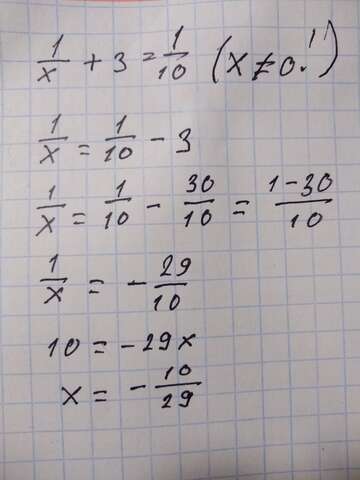 1/x + 3 = 1/10 (x ≠ 0!!)
1/x = 1/10 - 3
1/x = 1/10 - 30/10 = 1-30/10
1/x = - 29/10
10 = -29x
x = - 10/29